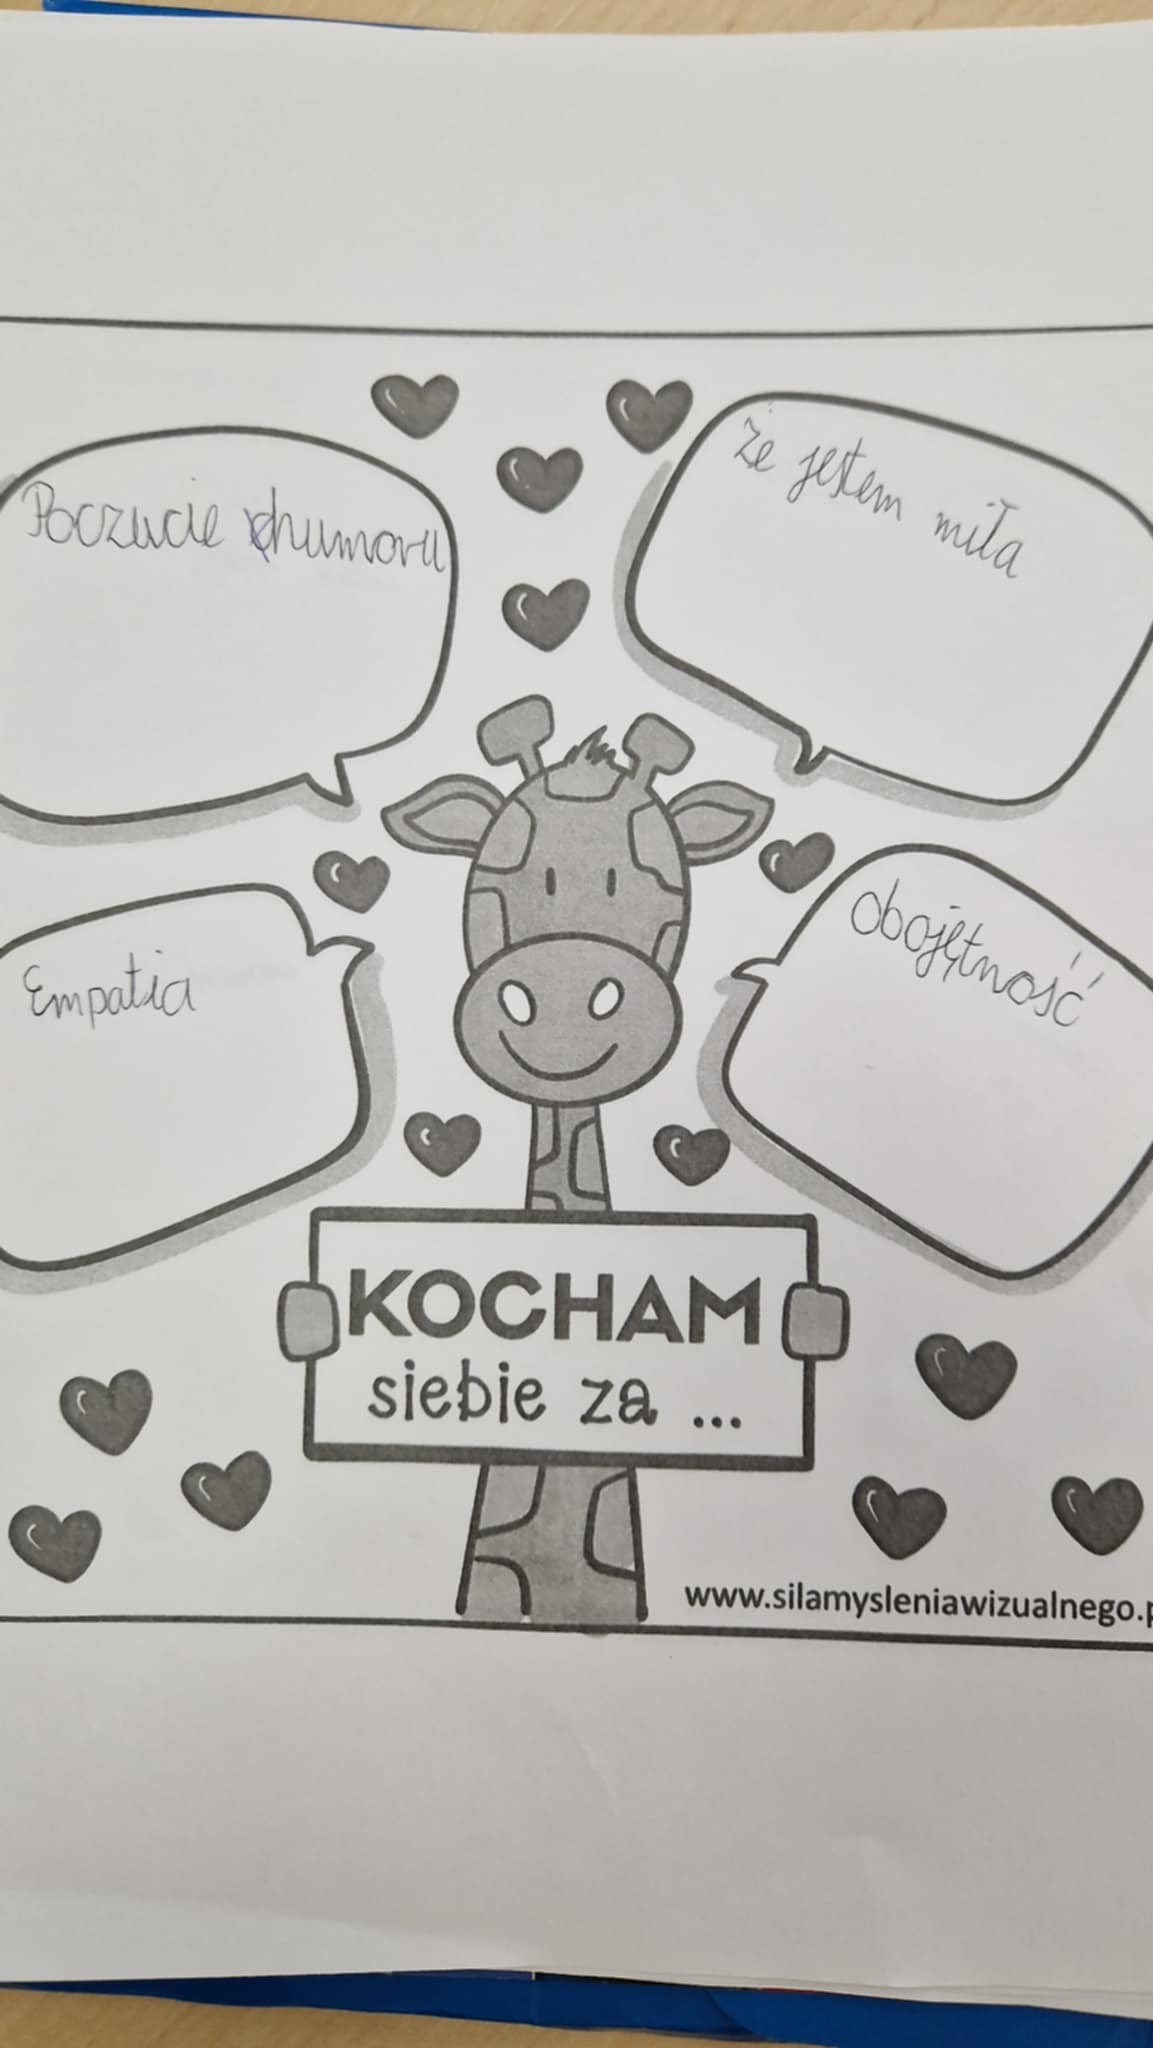 Poczucie humoru
że jestem miła
Empatia
obojętność
KOCHAM
siebie za ...
www.silamysleniawizualnego.p